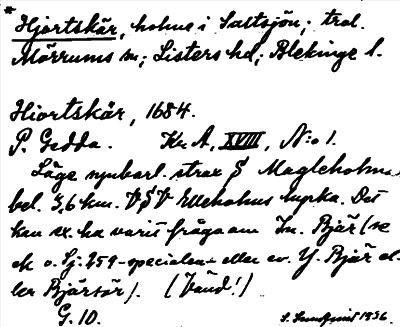 * Hjortskär, holme i Saltsjön; trol.
Mörrums sn; Listers hd; Blekinge l.
Hiortskär, 1684.
P. Gedda. Kr. A, XVIII, N:o 1.
Läge mycket strax S Magleholmen
bel. 3,6 km. VSV Elleholms kyrka. Det
kan ex. ha varit fråga om In. Bjär (se
ek o. Sj: 259-specialen eller ev. Y. Bjär el-
ler Bjärsör). (Vänd!)
G. 10. 1936.